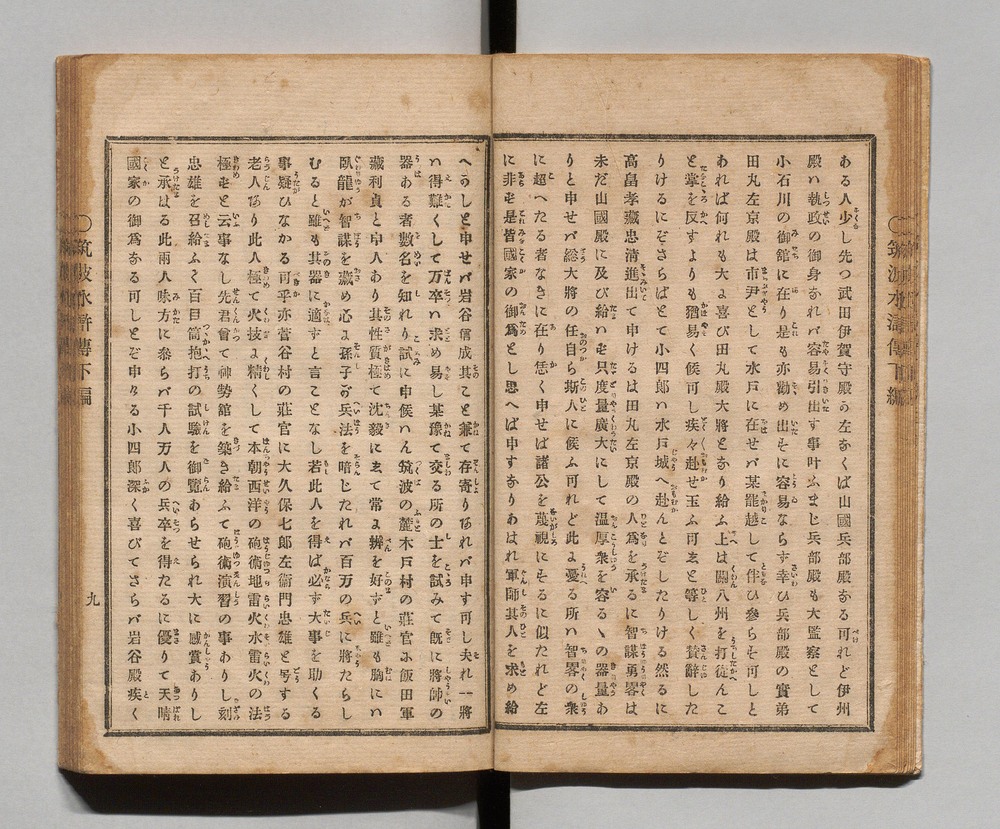 ある人少し先つ武田伊賀守殿るな左なくば山國兵部殿なる可れど伊州
殿ハ執政の御身なれバ容易引出す事叶ふまじ兵部殿も大監察として
小石川の御舘に在り是も亦勸め出そに容易ならす幸ひ兵部殿の實弟
田丸左京殿は市尹として水戸に在せバ某罷越して伴ひ參らそ可しと
あれば何れも大よ喜び田丸殿大將となり給ふ上は關八州を打従んこ
と掌を反すよりも猶易く候可し疾々赴せ玉ふ可ゑと等しく賛辭した
りけるにぞさらばとて小四郎ハ水戸城へ赴んとぞしたりける然るに
高畠孝藏忠清進出て申けるは田丸左京殿の人爲を承るに智謀勇畧は
未だ山國殿に及び給ハむ只度量廣大にして温厚衆を容るヽの器量あ
りと申せバ総大將の任自ら斯人に候ふ可れど此よ憂る所ハ智畧の衆
に超へたる者なきに在り恁く申せば諸公を蔑視にそるに似たれど左
に非も是皆國家の御爲とし思へば申すなりあはれ軍師其人を求め給
へうしと申せバ岩谷信成其こと兼て存寄りあれバ申す可し夫れ一將
ハ得難くして万卒ハ求め易し某豫て交る所の士を試みて既に將帥の
器ある者數名を知れり試に申候ハん筑波の麓木戸村の莊官ふ飯田軍
藏利貞と申人あり其性質極て沈毅にゑて常よ辨を好ずと雖も胸にハ
臥龍が智謀を藏め心よ孫子が兵法を暗じたれバ百万の兵に將たらし
むると雖も其器に適すと言ことなし若此人を得ば必す大事を助くる
事疑ひなかる可乎亦菅谷村の莊官に大久保七郎左衞門忠雄と号する
老人あり此人極て火技よ精くして本朝西洋の砲術地雷火水雷火の法
極むと云事なし先君曾て神勢館を築き給ふて砲術演習の事ありし刻
忠雄を召給ふく百目筒抱打の試驗を御覽あらせられ大に感賞ありし
と承はる此兩人味方に參らバ千人万人の兵卒を得たるに優りて天晴
國家の御爲なる可しとぞ申々る小四郎深く喜びてさらバ岩谷殿疾く
九